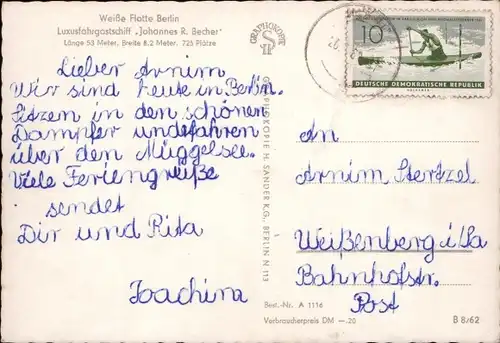 Weiße Flotte Berlin
Luxusfahrgastschiff „Johannes R. Becher"
Länge 53 Meter, Breite 8,2 Meter, 725 Plätze
Lieber Arnim
Wir sind heute in Berlin.
Sitzen in den schönen
Dampfer und fahren
über den Müggelsee.
Viele Feriengrüße
sendet
Dir und Rita
Joachim
GRAPHOKOPIE
GRAPHOKOPIE H. SANDER K.G., BERLIN N 113
10
DEUTSCHE DEMOKRATISCHE REPUBLIK
An
Arnim Stertzel
Weißenberg i/Sa
Bahnhofstr.
Post
Best.-Nr. A 1116
Verbraucherpreis DM -.20
B 8/62